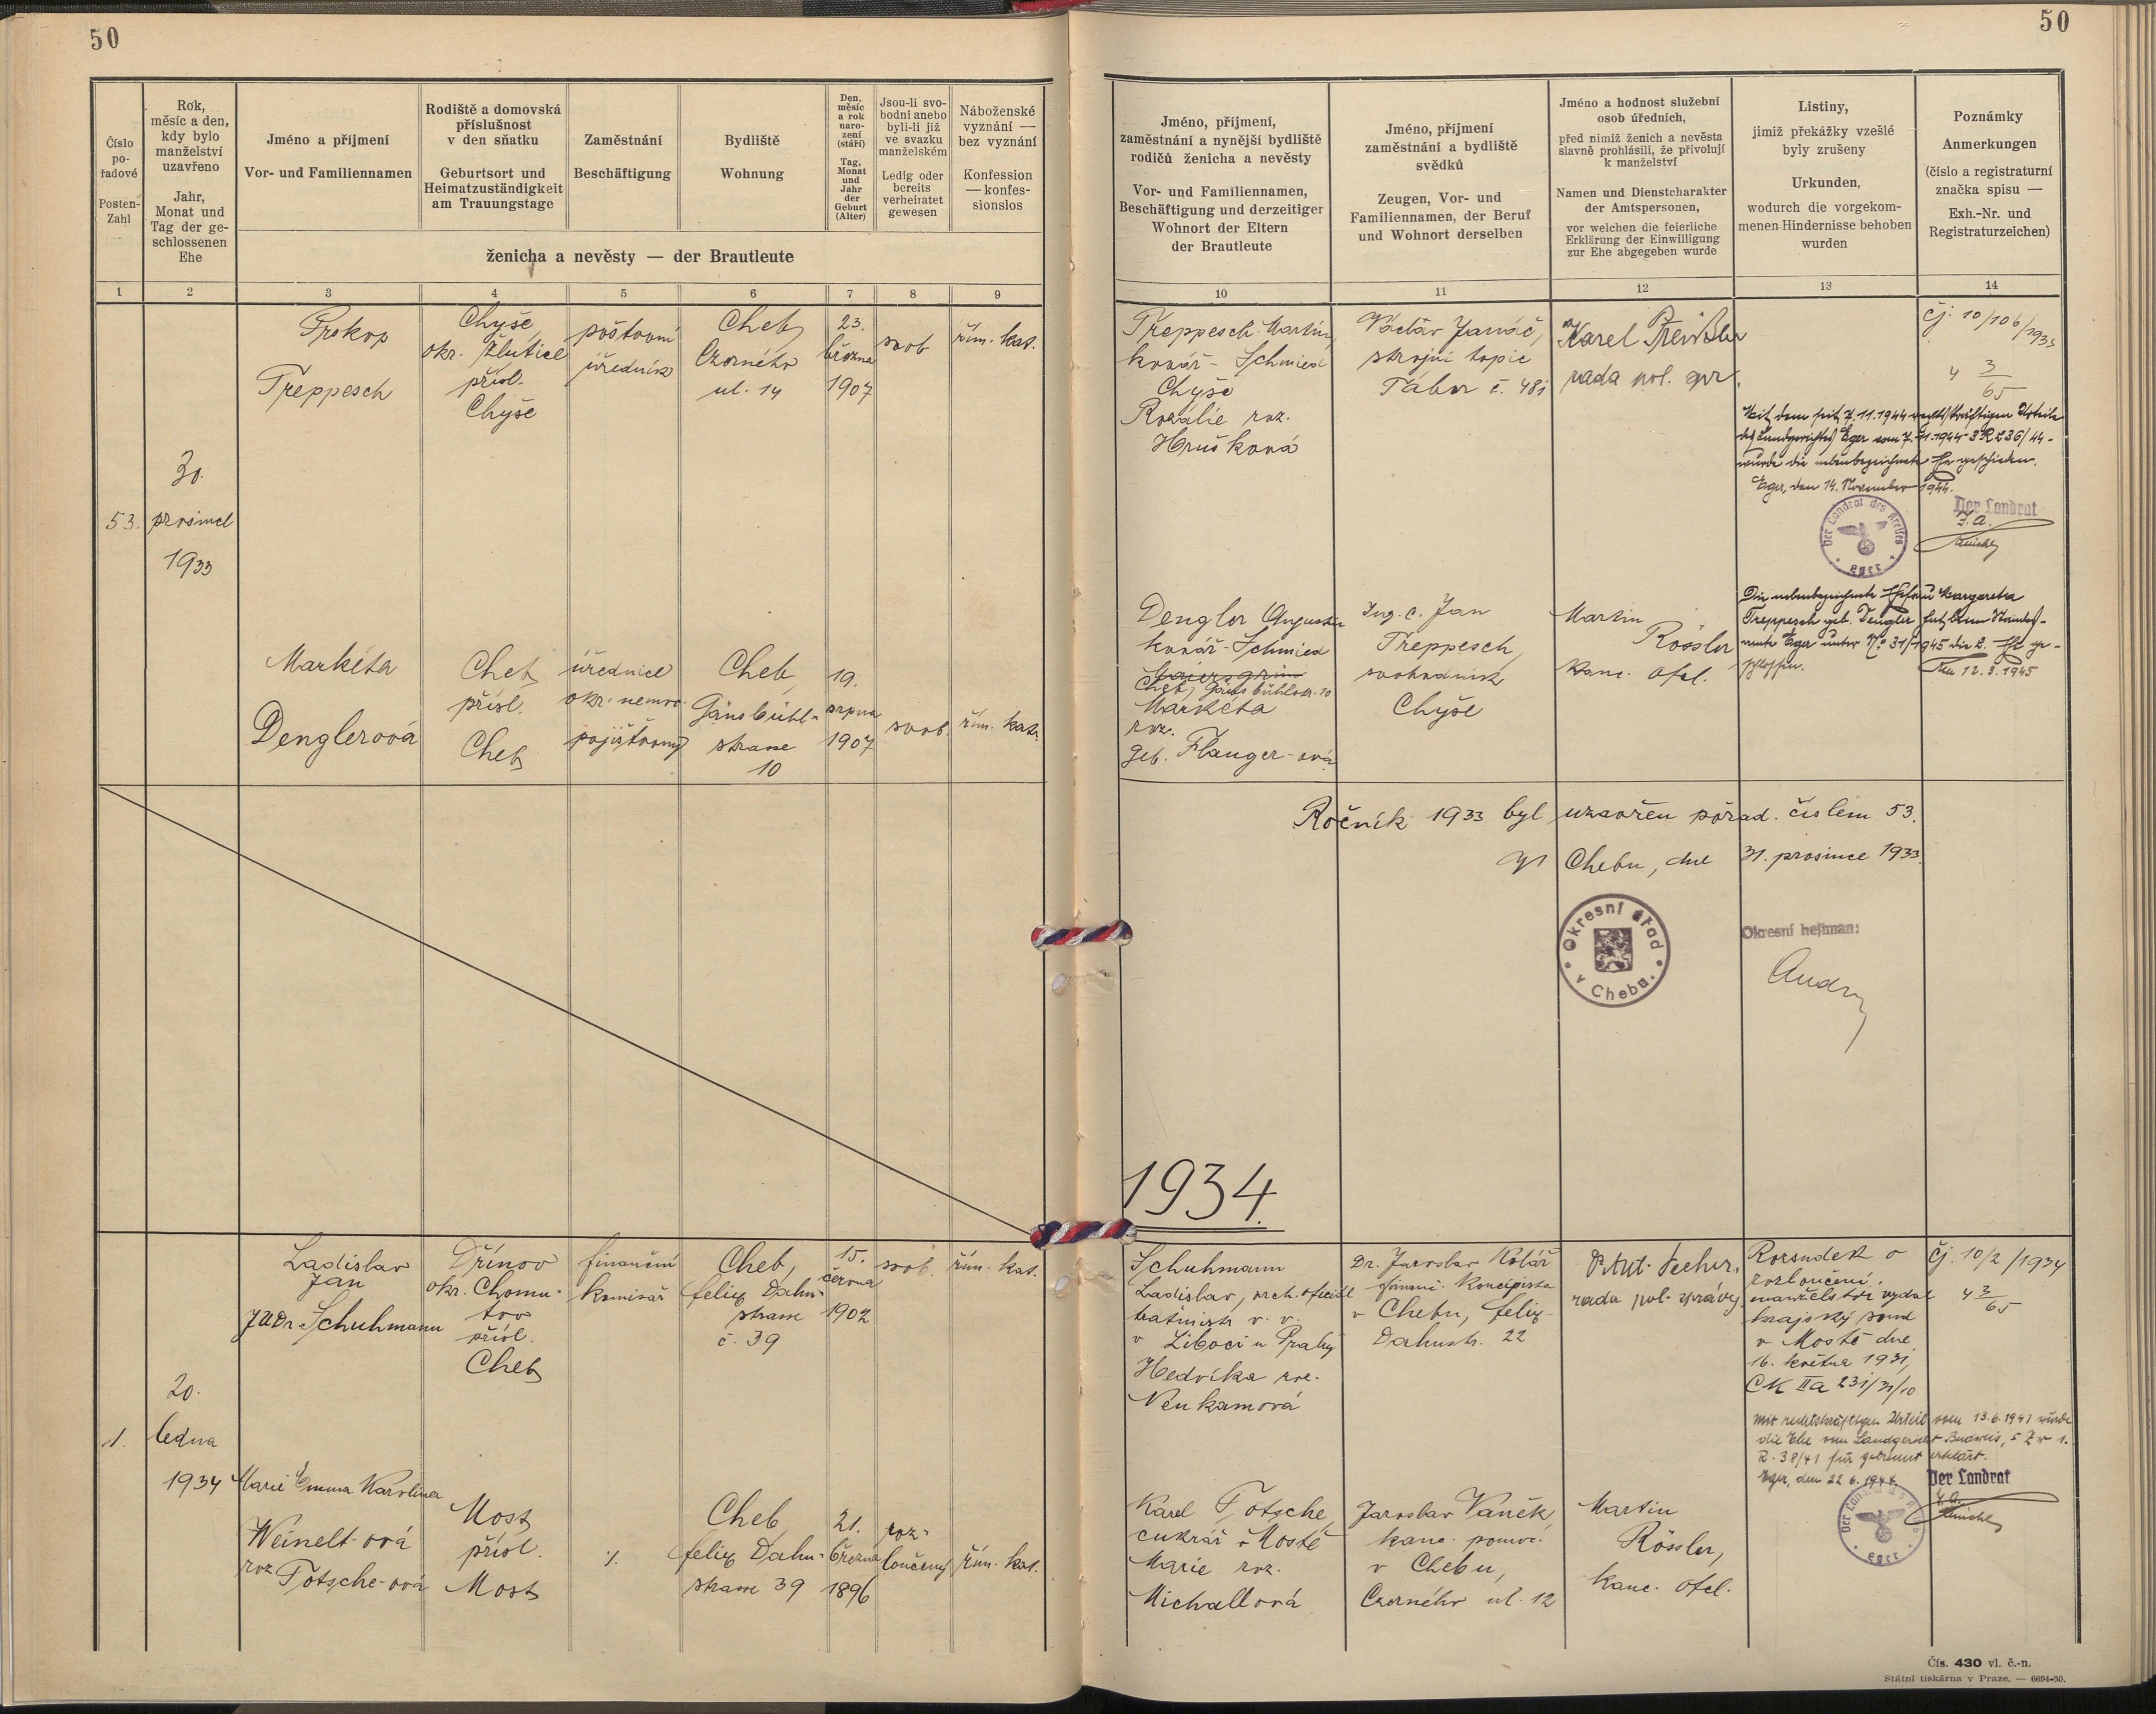 50
50
Číslo
po-
řadové
Posten-
Zahl
Rok,
měsíc a den,
kdy bylo
manželství
uzavřeno
Jahr,
Monat und
Tag der ge-
schlossenen
Ehe
Jméno a příjmení
Vor- und Familiennamen
Rodiště a domovská
příslušnost
v den sňatku
Geburtsort und
Heimatzuständigkeit
am Trauungstage
Zaměstnání
Beschäftigung
Bydliště
Wohnung
Den,
měsíc
a rok
naro-
zení
(stáří)
Tag,
Monat
und
Jahr
der
Geburt
(Alter)
Jsou-li svo-
bodni anebo
byli-li již
ve svazku
manželském
Ledig oder
bereits
verheiratet
gewesen
Náboženské
vyznání —
bez vyznání
Konfession
— konfes-
sionslos
ženicha a nevěsty — der Brautleute
1 2 3 4 5 6 7 8 9
Jméno, příjmení,
zaměstnání a nynější bydliště
rodičů ženicha a nevěsty
Vor- und Familiennamen,
Beschäftigung und derzeitiger
Wohnort der Eltern
der Brautleute
Jméno, příjmení
zaměstnání a bydliště
svědků
Zeugen, Vor- und
Familiennamen, der Beruf
und Wohnort derselben
Jméno a hodnost služební
osob úředních,
před nimiž ženich a nevěsta
slavně prohlásili, že přivolují
k manželství
Namen und Dienstcharakter
der Amtspersonen,
vor welchen die feierliche
Erklärung der Einwilligung
zur Ehe abgegeben wurde
Listiny,
jimiž překážky vzešlé
byly zrušeny
Urkunden,
wodurch die vorgekom-
menen Hindernisse behoben
wurden
Poznámky
Anmerkungen
(číslo a registraturní
značka spisu —
Exh.-Nr. und
Registraturzeichen)
10 11 12 13 14
53.
30.
prosince
1933
Prokop
Treppesch
Chyše,
okr. Žlutice
přísl.
Chyše
poštovní
úředník
Cheb,
Czerného
ul. 14
23.
března
1907
svob.
řím. kat.
Treppesch Martin,
kovář - Schmied
Chyše
Rozálie roz.
Hrušková
Václav Janáč,
strojní topič
Tábor č. 481
Karel
rada pol. spr.
čj. 10/106/1933
4 3/65
Mit dem seit 7.11.1944 rechtskräftigen Urteile
des Landgerichtes Eger vom 7.11.1944 - 3 R 236/44 -
wurde die nebenbezeichnete Ehe geschieden.
Eger, den 14. November 1944.
Der Landrat
J.A.
Der Landrat des Kreises
Eger
Markéta
Denglerová
Cheb
přísl.
Cheb
úřednice
okr. nemoc.
pojišťovny
Cheb,
Gänsbühl-
strasse
10
19.
srpna
1907
svob.
řím. kat.
Dengler
kovář - Schmied
Cheb, Gänsbühlstr. 10
Markéta
roz.
geb. Flanger-ová
Ing. C. Jan
Treppesch,
svobodník
Chyše
Martin
Rössler
kanc. ofcl.
Die nebenbezeichnete Ehefrau Margareta
Treppesch geb. Dengler hat beim Standes-
amte Eger unter No 31/1945 die 2. Ehe ge-
schlossen.
Den 12.3.1945
Ročník 1933 byl uzavřen pořad. číslem 53.
V Chebu, dne 31. prosince 1933.
Okresní úřad
v Chebu.
Okresní hejtman:
1934.
1.
20.
ledna
1934
Ladislav
Jan
JUDr. Schuhmann
Dřínov
okr. Chomu-
tov
přísl.
Cheb
finanční
komisař
Cheb,
Felix Dahn-
strasse
č. 39
15.
června
1902
svob.
řím. kat.
Schuhmann
Ladislav, vrch. oficiál
v Liboci u Prahy
Hedvika roz.
Neukamová
Dr. Jaroslav Kolář
finanč. koncipista
v Chebu, Felix-
Dahnstr. 22
rada pol. správy
Rozsudek o
rozloučení
manželství vydal
krajský soud
v Mostě dne
16. května 1931,
CK IIa 231/31/10
čj. 10/2/1934
4 3/65
Mit rechtskräftigem Urteil vom 13.6.1941 wurde
die Ehe vom Landgericht Budweis, 5
R. 38/41 für getrennt erklärt.
Eger, den 22.6.1944.
Der Landrat
J.A.
Der Landrat
Eger
Marie Emma Karolina
Weinelt-ová
roz.
Totsche-ová
Most
přísl.
Most
./.
Cheb,
Felix Dahn-
strasse 39
21.
března
1896
roz-
loučený
řím. kat.
Karel Totsche,
cukrář v Mostě
Marie roz.
Michallová
Jaroslav Vaněk
kanc. pomoc.
v Chebu,
Czerného ul. 12
Martin
Rössler,
kanc. ofcl.
Čís. 430 vl. č.-n.
Státní tiskárna v Praze. — 6694-30.